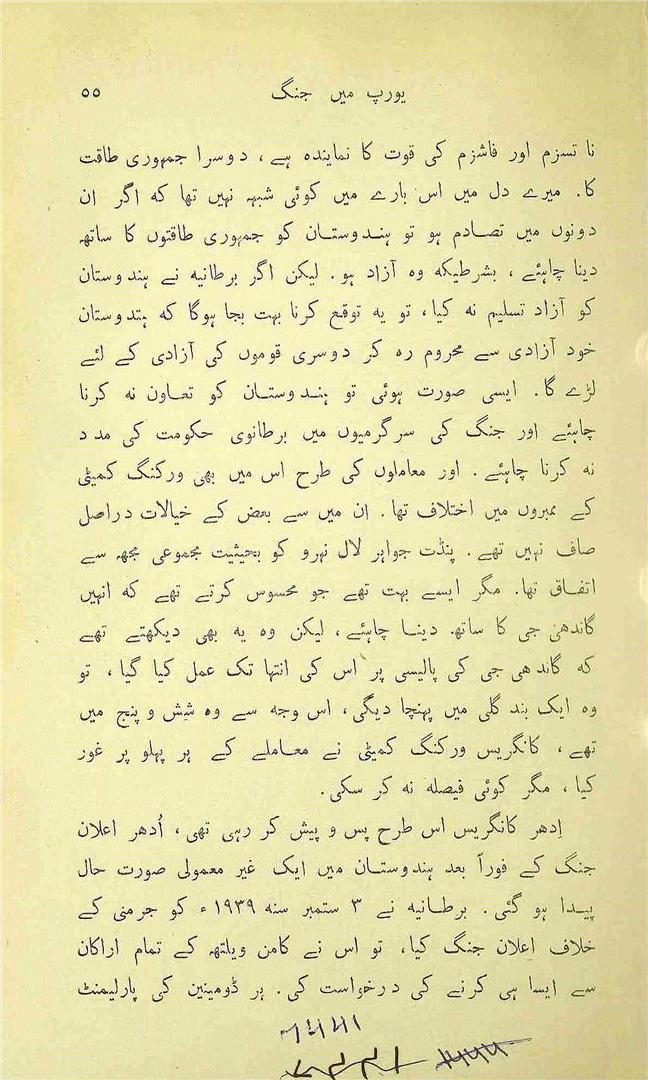 یورپ میں جنگ ۵۵
نا تسزم اور فاشزم کی قوت کا نمایندہ ہے، دوسرا جمہوری طاقت
کا. میرے دل میں اس بارے میں کوئی شبہہ نہیں تھا کہ اگر ان
دونوں میں تصادم ہو تو ہندوستان کو جمہوری طاقتوں کا ساتھہ
دینا چاہئے، بشرطیکہ وہ آزاد ہو. لیکن اگر برطانیہ نے ہندوستان
کو آزاد تسلیم نہ کیا، تو یہ توقع کرنا بہت بجا ہوگا کہ ہتدوستان
خود آزادی سے محروم رہ کر دوسری قوموں کی آزادی کے لئے
لڑے گا. ایسی صورت ہوئی تو ہندوستان کو تعاون نہ کرنا
چاہئے اور جنگ کی سرگرمیوں میں برطانوی حکومت کی مدد
نہ کرنا چاہئے. اور معاملوں کی طرح اس میں بھی ورکنگ کمیٹی
کے ممبروں میں اختلاف تھا. ان میں سے بعض کے خیالات دراصل
صاف نہیں تھے. پنڈت جواہر لال نہرو کو بحیثیت مجموعی مجھہ سے
اتفاق تھا. مگر ایسے بہت تھے جو محسوس کرتے تھے کہ انہیں
گاندھی جی کا ساتھہ دینا چاہئے، لیکن وہ یہ بھی دیکھتے تھے
کہ گاندھی جی کی پالیسی پر اس کی انتہا تک عمل کیا گیا، تو
وہ ایک بند گلی میں پہنچا دیگی، اس وجہ سے وہ شِش و پنج میں
تھے، کانگریس ورکنگ کمیٹی نے معاملے کے ہر پہلو پر غور
کیا، مگر کوئی فیصلہ نہ کر سکی.
اِدھر کانگریس اس طرح پس و پیش کر رہی تھی، اُدھر اعلان
جنگ کے فوراً بعد ہندوستان میں ایک غیر معمولی صورت حال
پیدا ہو گئی. برطانیہ نے ۳ ستمبر سنہ ۱۹۳۹ء کو جرمنی کے
خلاف اعلان جنگ کیا، تو اس نے کامن ویلتھہ کے تمام اراکان
سے ایسا ہی کرنے کی درخواست کی. ہر ڈومینین کی پارلیمنٹ